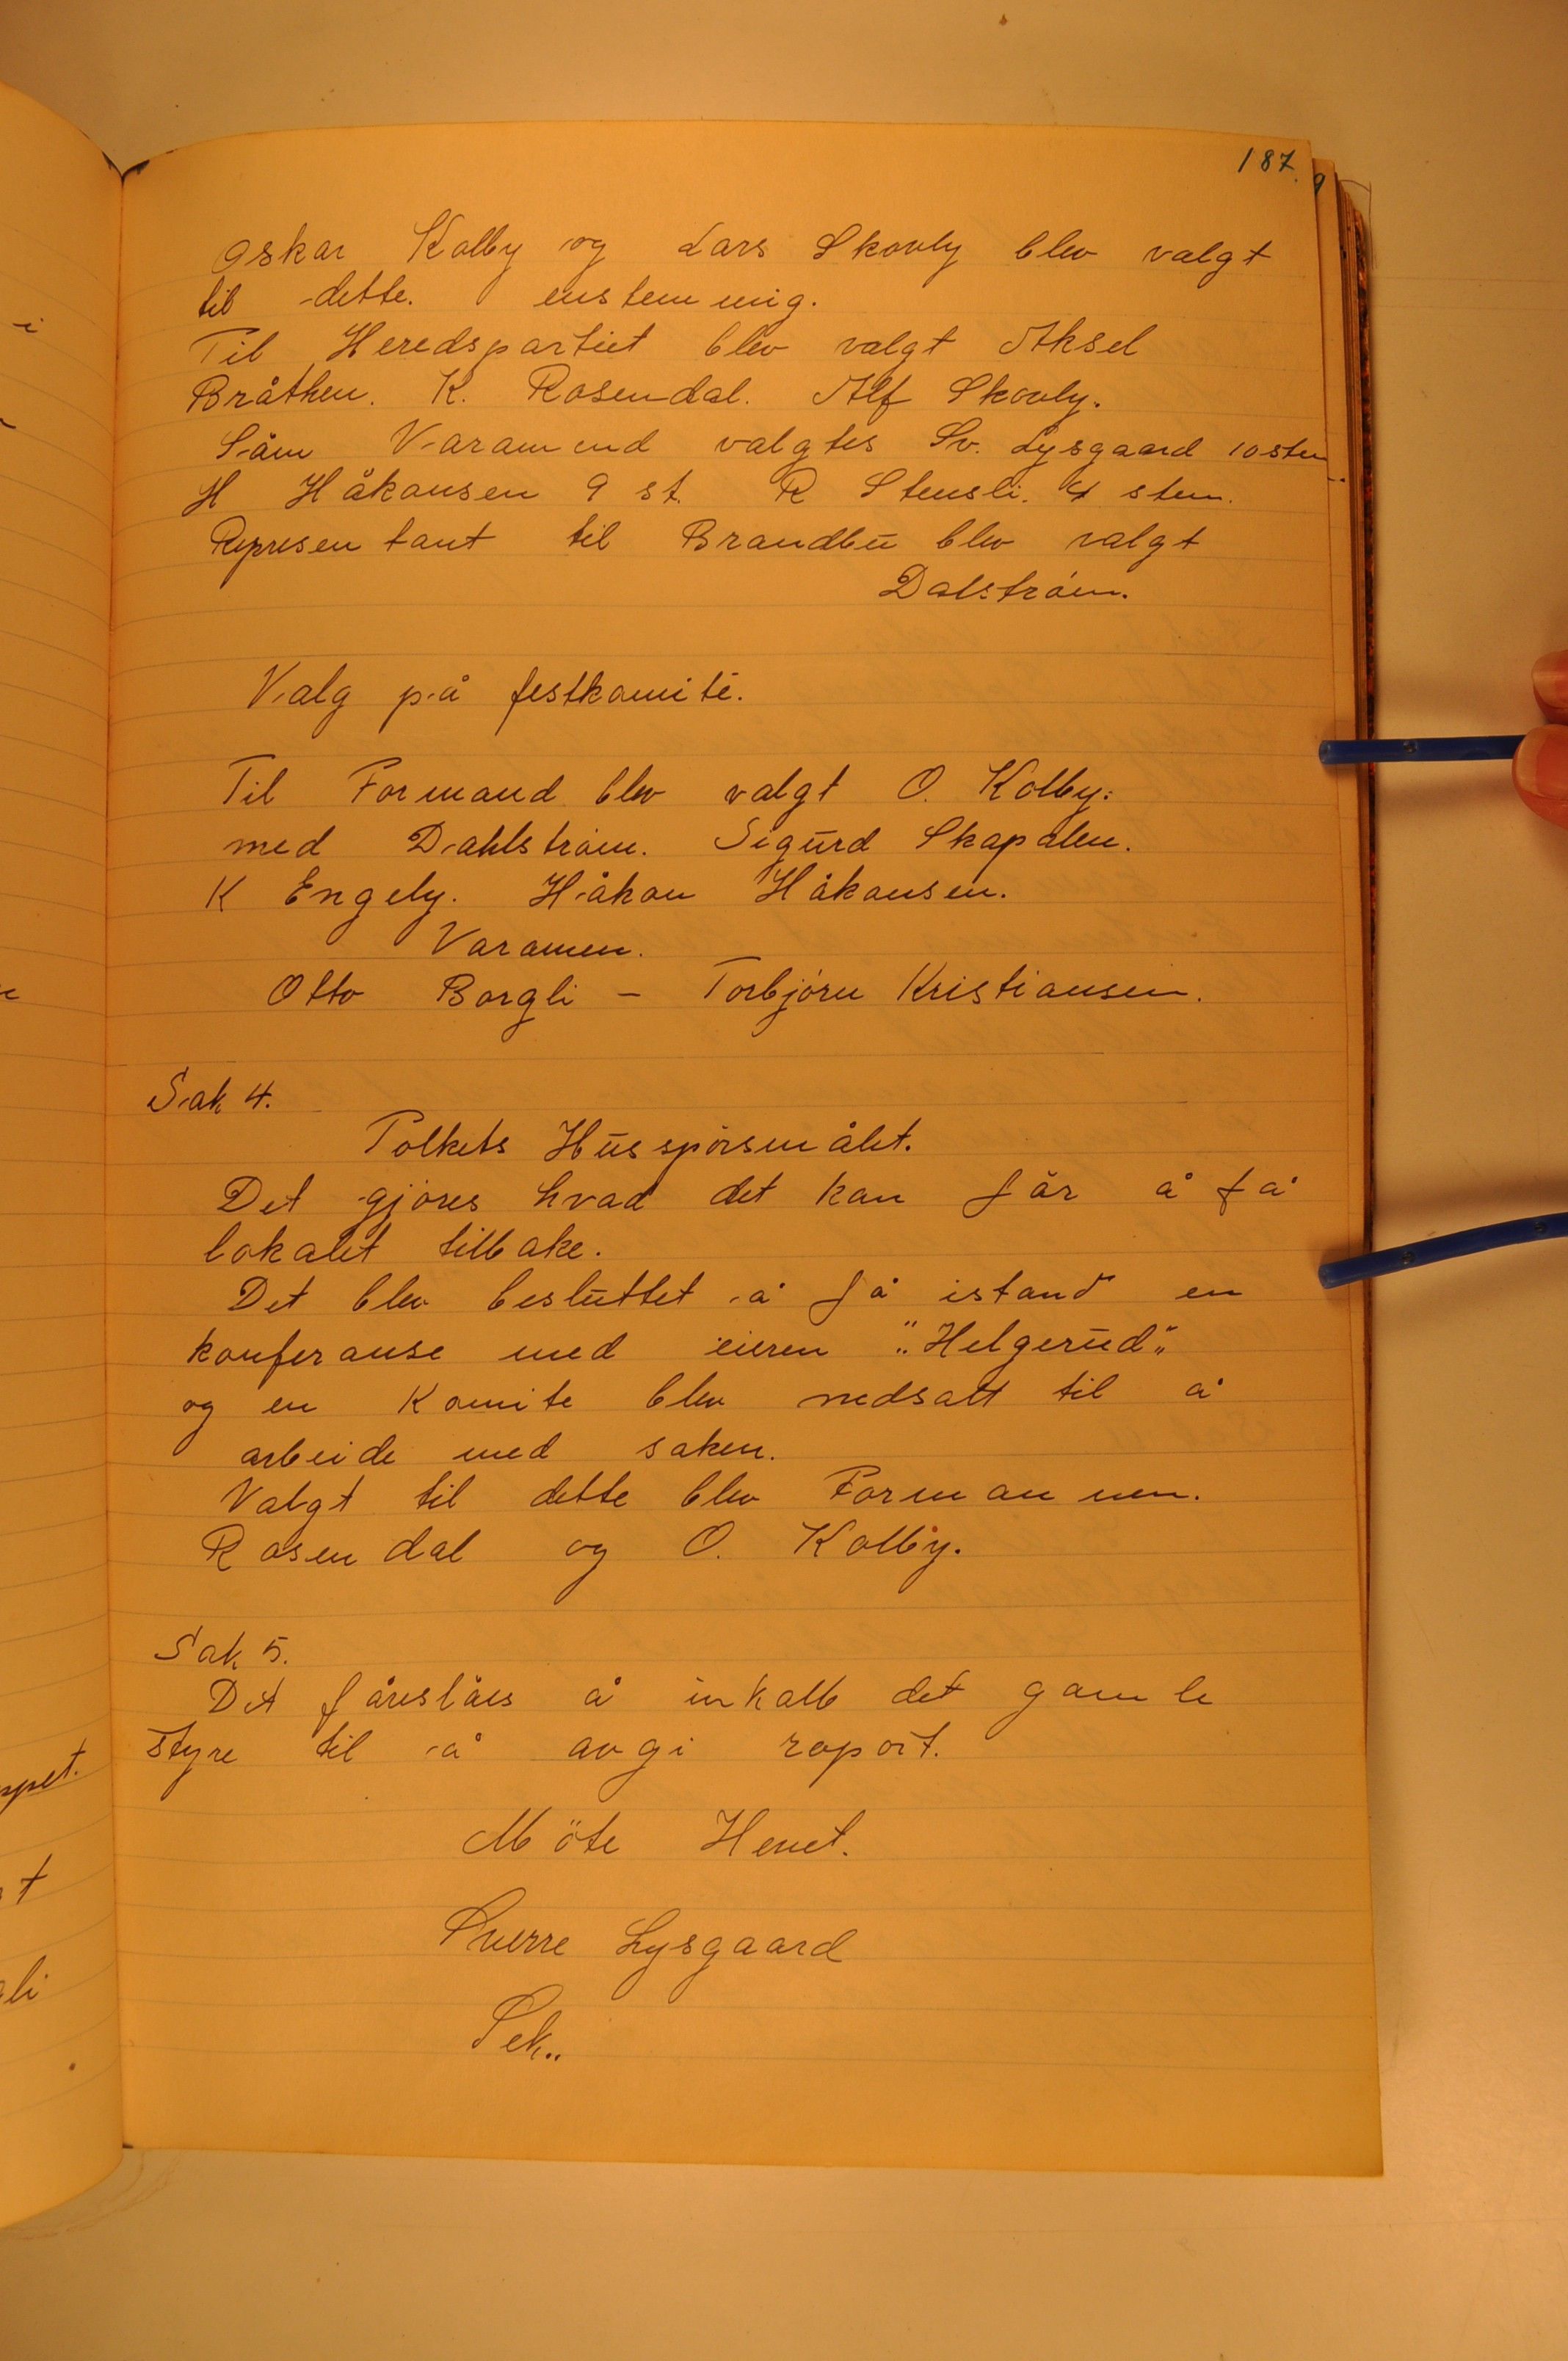 187.
Oskar Kolby og Lars Skovly blev valgt
til dette. enstemmig.
Til Heredspartiet blev valgt Aksel
Bråthen. K. Rosendal. Alf Skovly.
Såm Varamend valgtes Sv. Lysgaard 10 stem
H Håkonsen 9 st. R Stensli. 4 stem.
Representant til Brandbu blev valgt
Dalstróm.
Valg på festkomité.
Til Formand blev valgt O. Kolby:
med Dahlstróm. Sigurd Skapalen.
K Engely. Håkon Håkonsen.
Varamen.
Otto Borgli – Torbjórn Kristiansen.
Sak 4.
Folkets Hus spórsmålet.
Det gjóres hvad det kan får å få
lokalet tilbake.
Det blev besluttet å få istand en
konferanse med eieren "Helgerud"
og en Komite blev nedsatt til å
arbeide med saken.
Valgt til dette blev Formannen.
Rosendal og O. Kolby.
Sak 5.
Det fåreslåes å inkalle det gamle
styre til å avgi raport.
Möte Hevet.
Sverre Lysgaard
Sek..